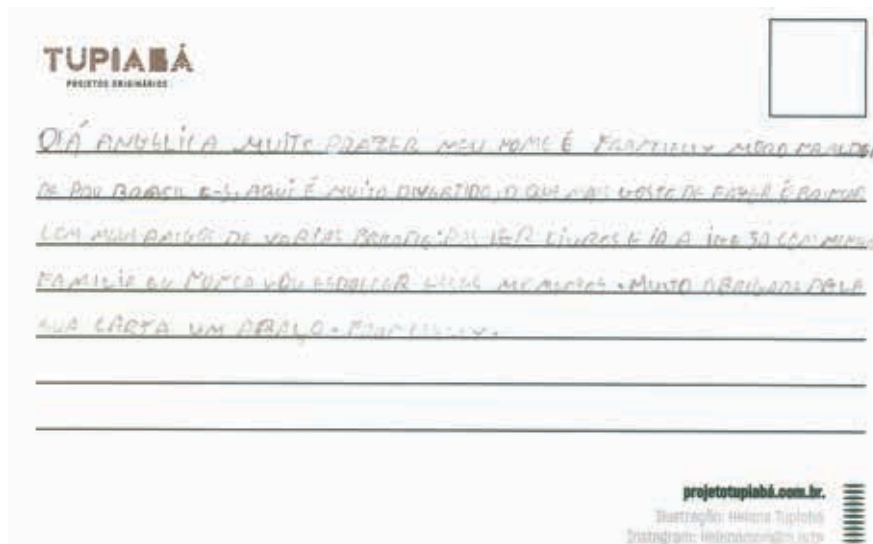 TUPIABÁ
PROJETOS ORIGINÁRIOS
OLÁ ANGELICA MUITO PRAZER MEU NOME É FRANCIELLY MORO
DE PAU BRASIL E-S, AQUI É MUITO DIVERTIDO, O QUE MAIS GOSTO DE FAZER É BRINCAR
COM MEUS AMIGOS DE VARIAS LER LIVROS E IR A COM MINHA
FAMILIA EU NUNCA VOU ESQUECER MEMENTOS. MUITO OBRIGADA PELA
SUA CARTA UM ABRAÇO. FRANCIELLY.
projetotupiabá.com.br.
Ilustração: Helena Tupiabá
Instagram: